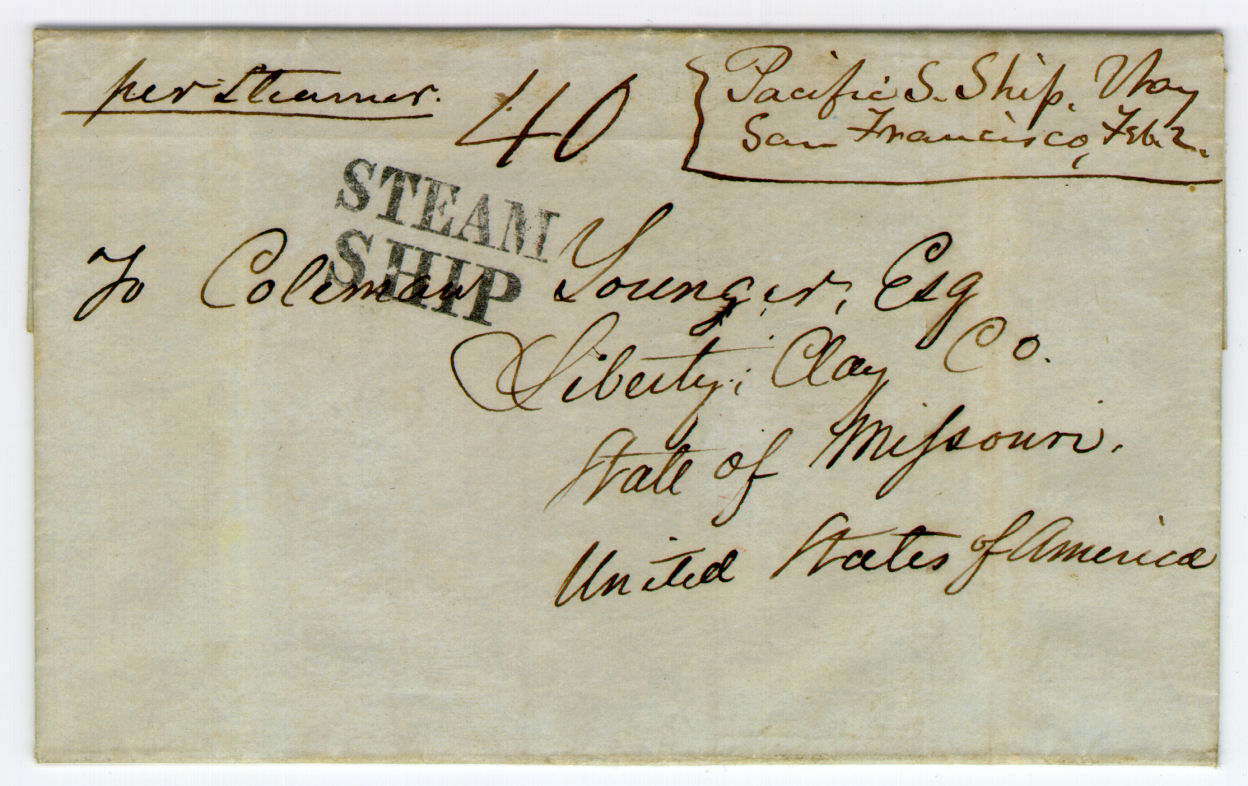 per Steamer.
40
Pacific S. Ship.
San Francisco, Feb. 2.
STEAM
SHIP
To Coleman Younger, Esq
Liberty; Clay Co.
State of Missouri.
United States of America